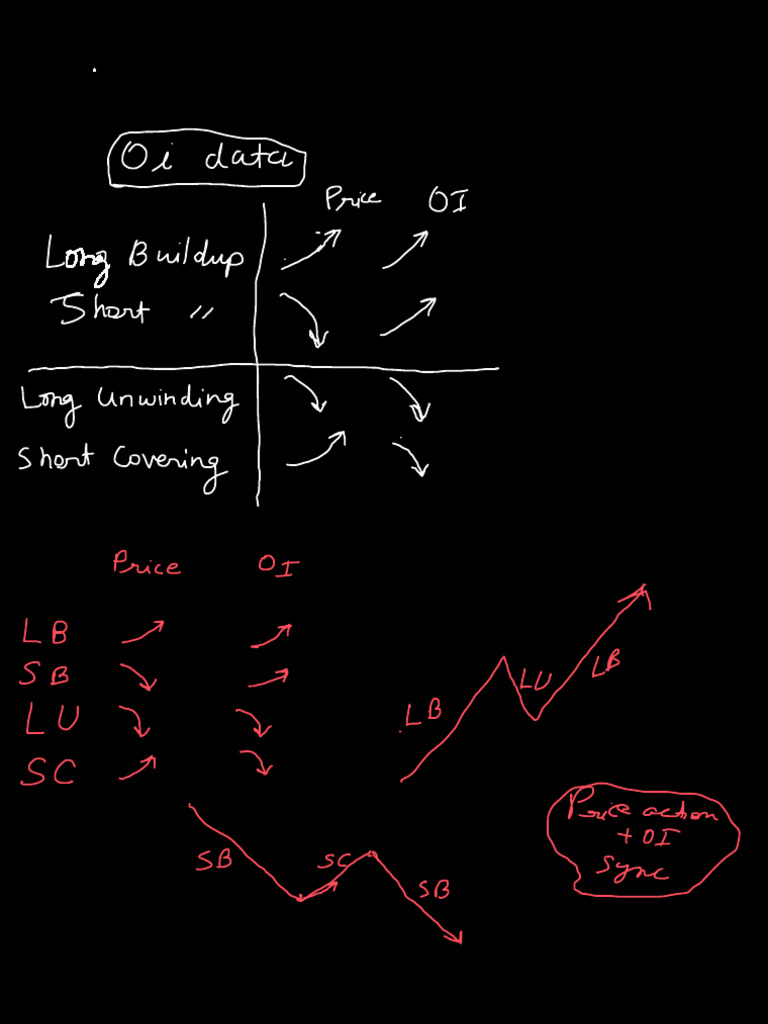 Oi data
Price OI
Long Buildup
Short "
Long Unwinding
Short Covering
Price OI
LB
SB
LU
SC
LB
LU
LB
SB
SC
SB
Price action
+ OI
Sync